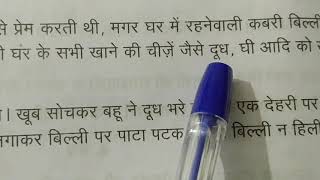 से प्रेम करती थी, मगर घर में रहनेवाली कबरी बिल्ली
घर के सभी खाने की चीज़ें जैसे दूध, घी आदि को
। खूब सोचकर बहू ने दूध भरे एक देहरी पर
गाकर बिल्ली पर पाटा पटक बिल्ली न हिली